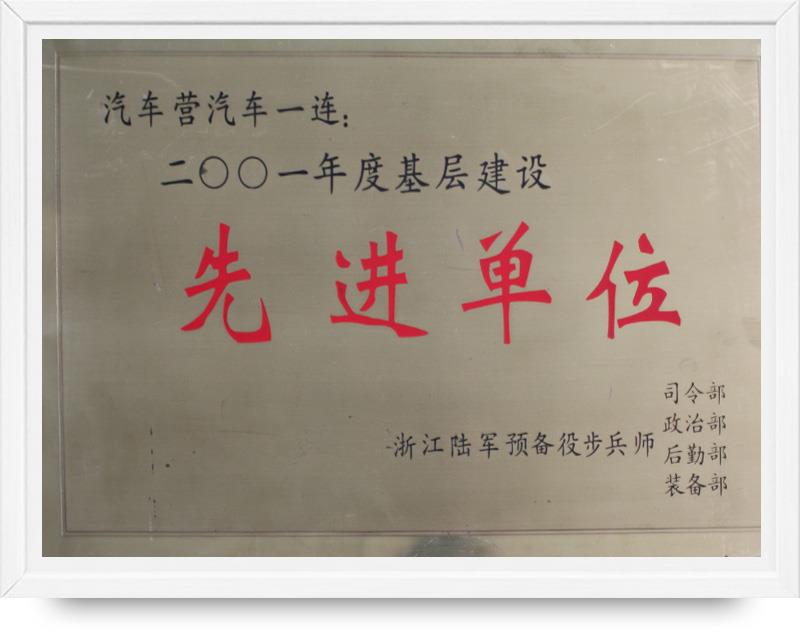 汽车营汽车一连：
二〇〇一年度基层建设
先进单位
浙江陆军预备役步兵师
司令部
政治部
后勤部
装备部